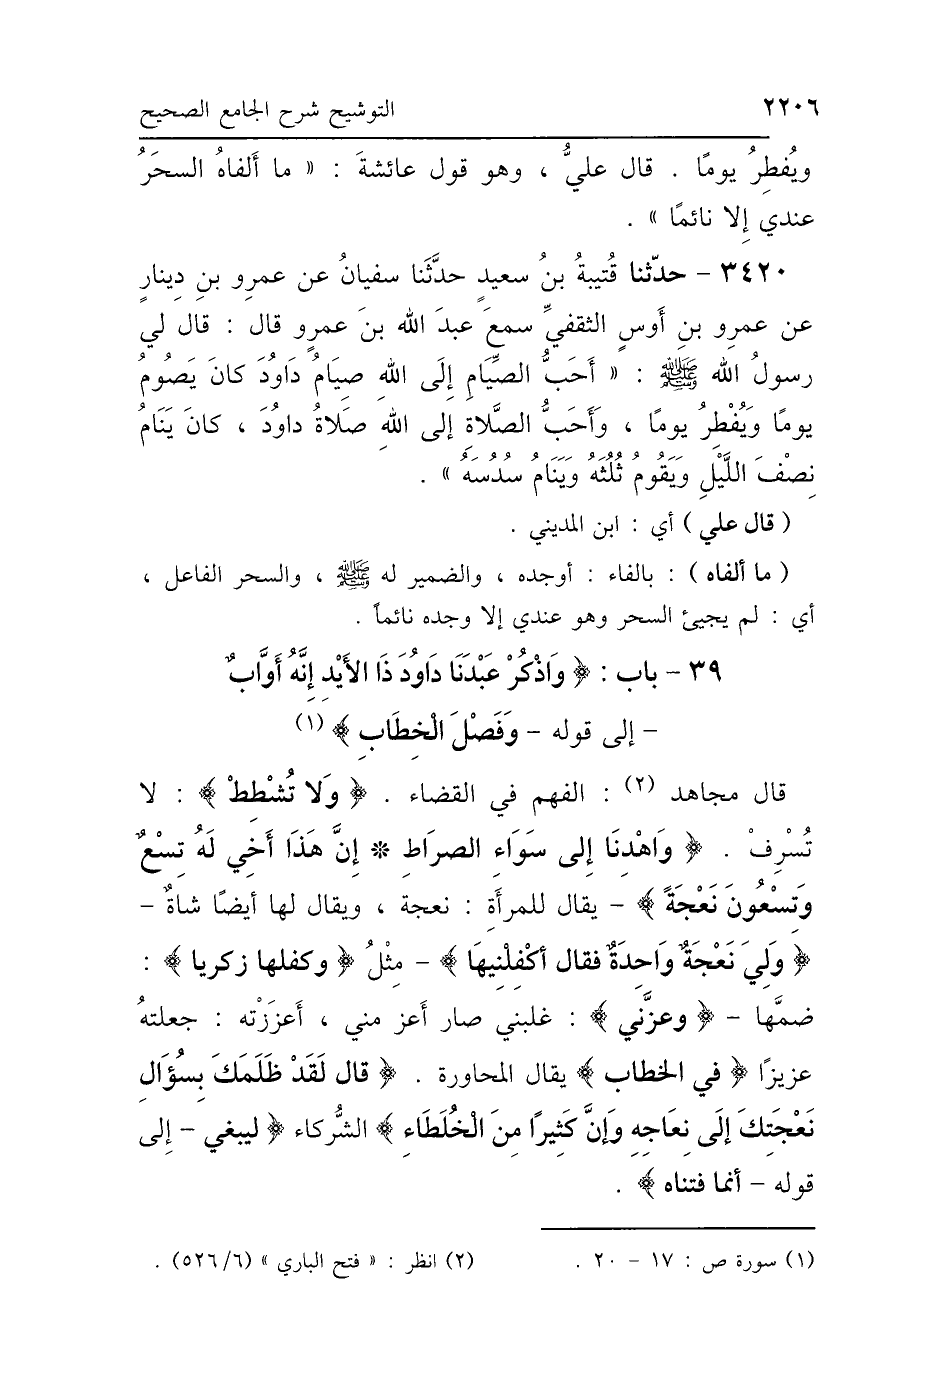 ٢٢٠٦ التوشيح شرح الجامع الصحيح
ويُفطِرُ يومًا . قال عليٌّ ، وهو قول عائشةَ : « ما ألفاهُ السحَرُ
عندي إلا نائمًا » .
٣٤٢٠ – حدّثنا قُتيبةُ بنُ سعيدٍ حدَّثَنا سفيانُ عن عمرِو بنِ دِينارٍ
عن عمرِو بنِ أَوسٍ الثقفيِّ سمعَ عبدَ الله بنَ عمرٍو قال : قال لي
رسولُ الله ﷺ : « أَحَبُّ الصِّيَامِ إلَى اللهِ صِيَامُ دَاوُدَ كانَ يَصُومُ
يومًا وَيُفْطِرُ يومًا ، وأَحَبُّ الصَّلاةِ إلى اللهِ صَلاةُ داوُدَ ، كانَ يَنَامُ
نِصْفَ اللَّيْلِ وَيَقُومُ ثُلُثَهُ وَيَنَامُ سُدُسَهُ » .
( قال علي ) أي : ابن المديني .
( ما ألفاه ) : بالفاء : أوجده ، والضمير له ﷺ ، والسحر الفاعل ،
أي : لم يجيئ السحر وهو عندي إلا وجده نائماً .
٣٩ – باب : ﴿ وَاذْكُرْ عَبْدَنَا دَاوُدَ ذَا الأَيْدِ إِنَّهُ أَوَّابٌ
– إلى قوله – وَفَصْلَ الْخِطَابِ ﴾ (١)
قال مجاهد (٢) : الفهم في القضاء . ﴿ وَلا تُشْطِطْ ﴾ : لا
تُسْرِفْ . ﴿ وَاهْدِنَا إلى سَوَاءِ الصرَاطِ * إِنَّ هَذَا أَخِي لَهُ تِسْعٌ
وَتِسْعُونَ نَعْجَةً ﴾ – يقال للمرأَةِ : نعجة ، ويقال لها أيضًا شاةٌ –
﴿ وَلِيَ نَعْجَةٌ وَاحِدَةٌ فقال أكْفِلْنِيهَا ﴾ – مثْلُ ﴿ وكفلها زكريا ﴾ :
ضمَّها – ﴿ وعزَّني ﴾ : غلبني صار أعز مني ، أَعزَزْته : جعلتهُ
عزيزًا ﴿ في الخطاب ﴾ يقال المحاورة . ﴿ قال لَقَدْ ظَلَمَكَ بِسُؤَالِ
نَعْجَتِكَ إلَى نِعَاجِهِ وَإِنَّ كَثِيرًا مِنَ الْخُلَطَاءِ ﴾ الشُّركاء ﴿ ليبغي – إلى
قوله – أنما فتناه ﴾ .
(١) سورة ص : ١٧ – ٢٠ . (٢) انظر : « فتح الباري » (٦/ ٥٢٦) .